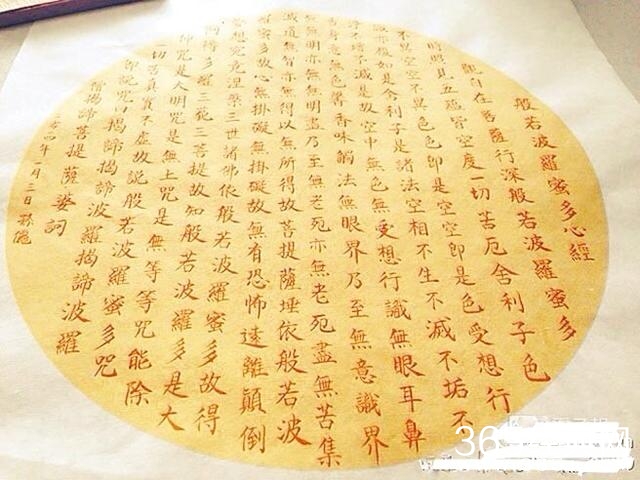 般若波羅蜜多心經
觀自在菩薩行深般若波羅蜜多
時照見五蘊皆空度一切苦厄舍利子色
不異空空不異色色即是空空即是色受想行
識亦復如是舍利子是諸法空相不生不滅不垢不
淨不增不減是故空中無色無受想行識無眼耳鼻
舌身意無色聲香味觸法無眼界乃至無意識界
無無明亦無無明盡乃至無老死亦無老死盡無苦集
滅道無智亦無得以無所得故菩提薩埵依般若波
羅蜜多故心無掛礙無掛礙故無有恐怖遠離顛倒
夢想究竟涅槃三世諸佛依般若波羅蜜多故得
阿耨多羅三藐三菩提故知般若波羅蜜多是大
神咒是大明咒是無上咒是無等等咒能除
一切苦真實不虛故說般若波羅蜜多咒
即說咒曰揭諦揭諦波羅揭諦波羅
僧揭諦菩提薩婆訶
年一月三日孫儷
36